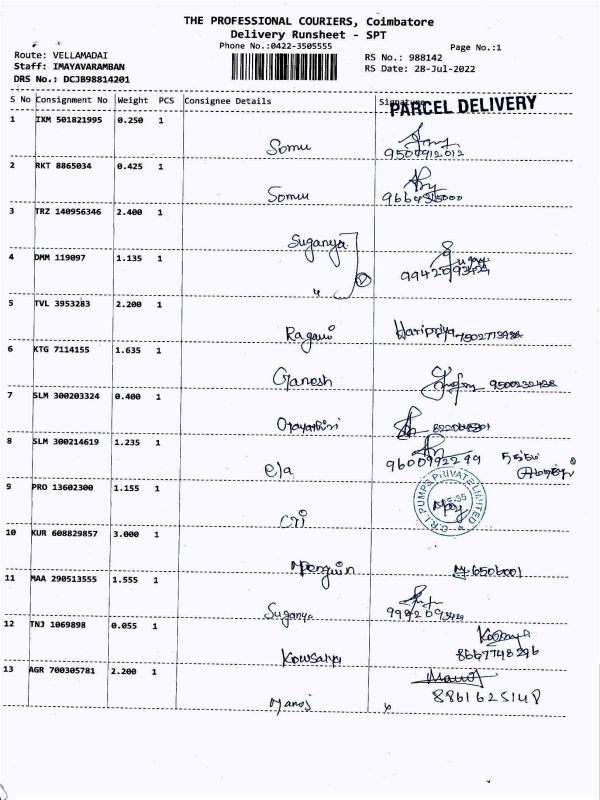 THE PROFESSIONAL COURIERS, Coimbatore
Delivery Runsheet - SPT
Phone No.:0422-3505555 Page No.:1
Route: VELLAMADAI RS No.: 988142
Staff: IMAYAVARAMBAN RS Date: 28-Jul-2022
DRS No.: DCJB98814201
S No Consignment No Weight PCS Consignee Details Signature
PARCEL DELIVERY
1 IXM 501821995 0.250 1
Somu 9500912012
2 RKT 8865034 0.425 1
Somu
3 TRZ 140956346 2.400 1
Suganya
4 DMM 119097 1.135 1
9942093424
5 TVL 3953283 2.200 1
Ragavi Haripriya
6 KTG 7114155 1.635 1
Ganesh 9500230438
7 SLM 300203324 0.400 1
8 SLM 300214619 1.235 1
ela 9600992299
9 PRO 13602300 1.155 1
cri
C.R.I. PUMPS PRIVATE LIMITED
10 KUR 608829857 3.000 1
11 MAA 290513555 1.555 1
Suganya
12 TNJ 1069898 0.055 1
Kowsalya 8667748296
13 AGR 700305781 2.200 1
Manoj 8861625148